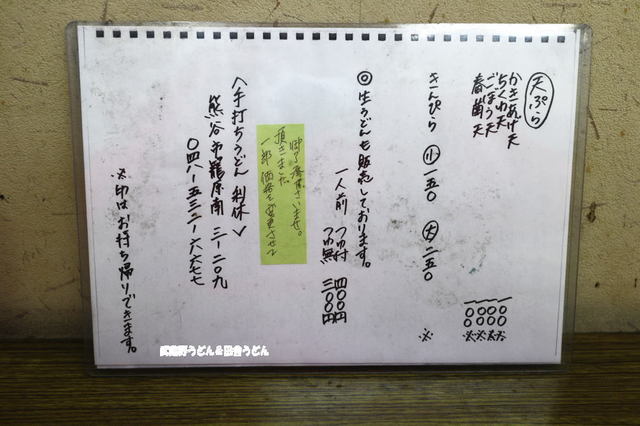 天ぷら
かきあげ天 一〇〇 ※
ちくわ天 一〇〇 ※
ごぼう天 一〇〇 ※
春菊天 一〇〇 ※
きんぴら 小 一五〇 大 二五〇 ※
◎生うどんも販売しております。
一人前 つゆ付 四〇〇円
つゆ無 三〇〇円
御了承下さいませ。
頂きました
一部 価格を変更させて
〈手打ちうどん 利休〉
熊谷市籠原南 三-二〇九
〇四八-五三二-六六七七
※印はお持ち帰りできます。
武蔵野うどん&田舎うどん